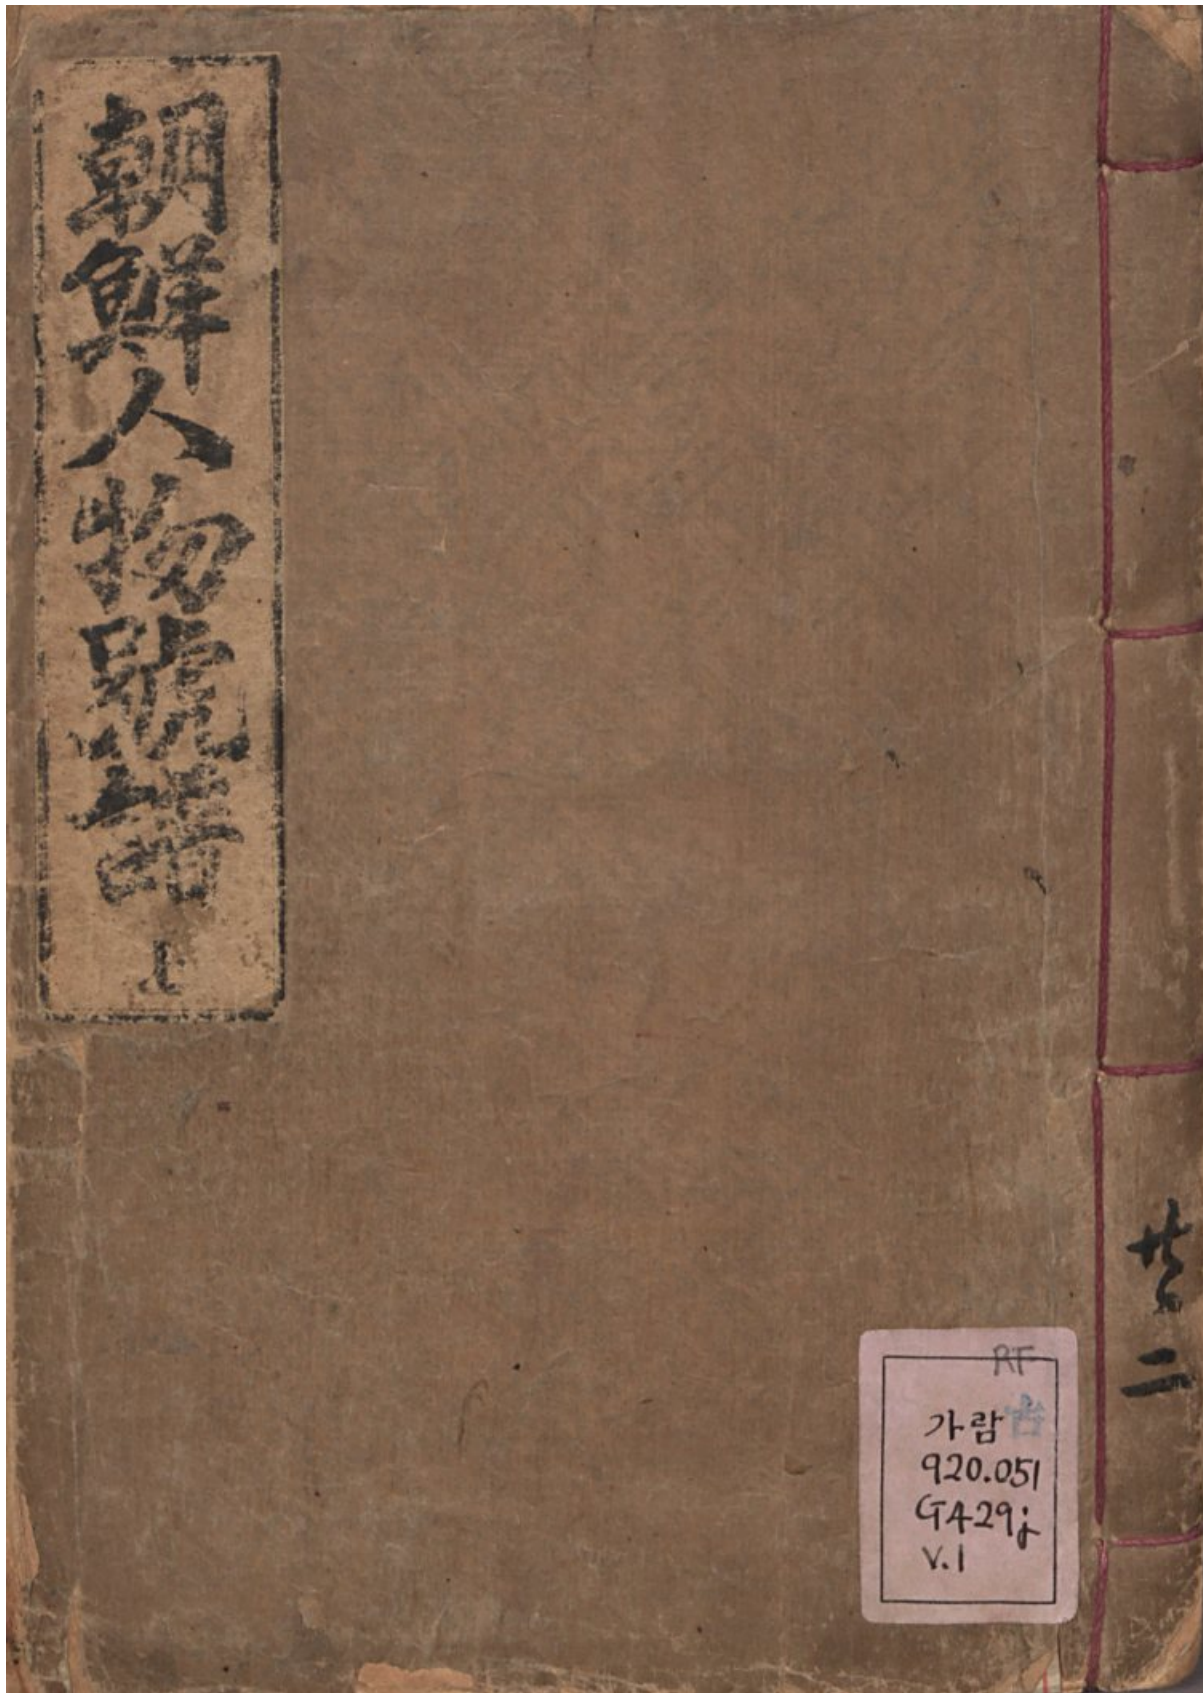 朝鮮人物號譜 上
共二
RF
古
가람
920.051
G429j
v.1